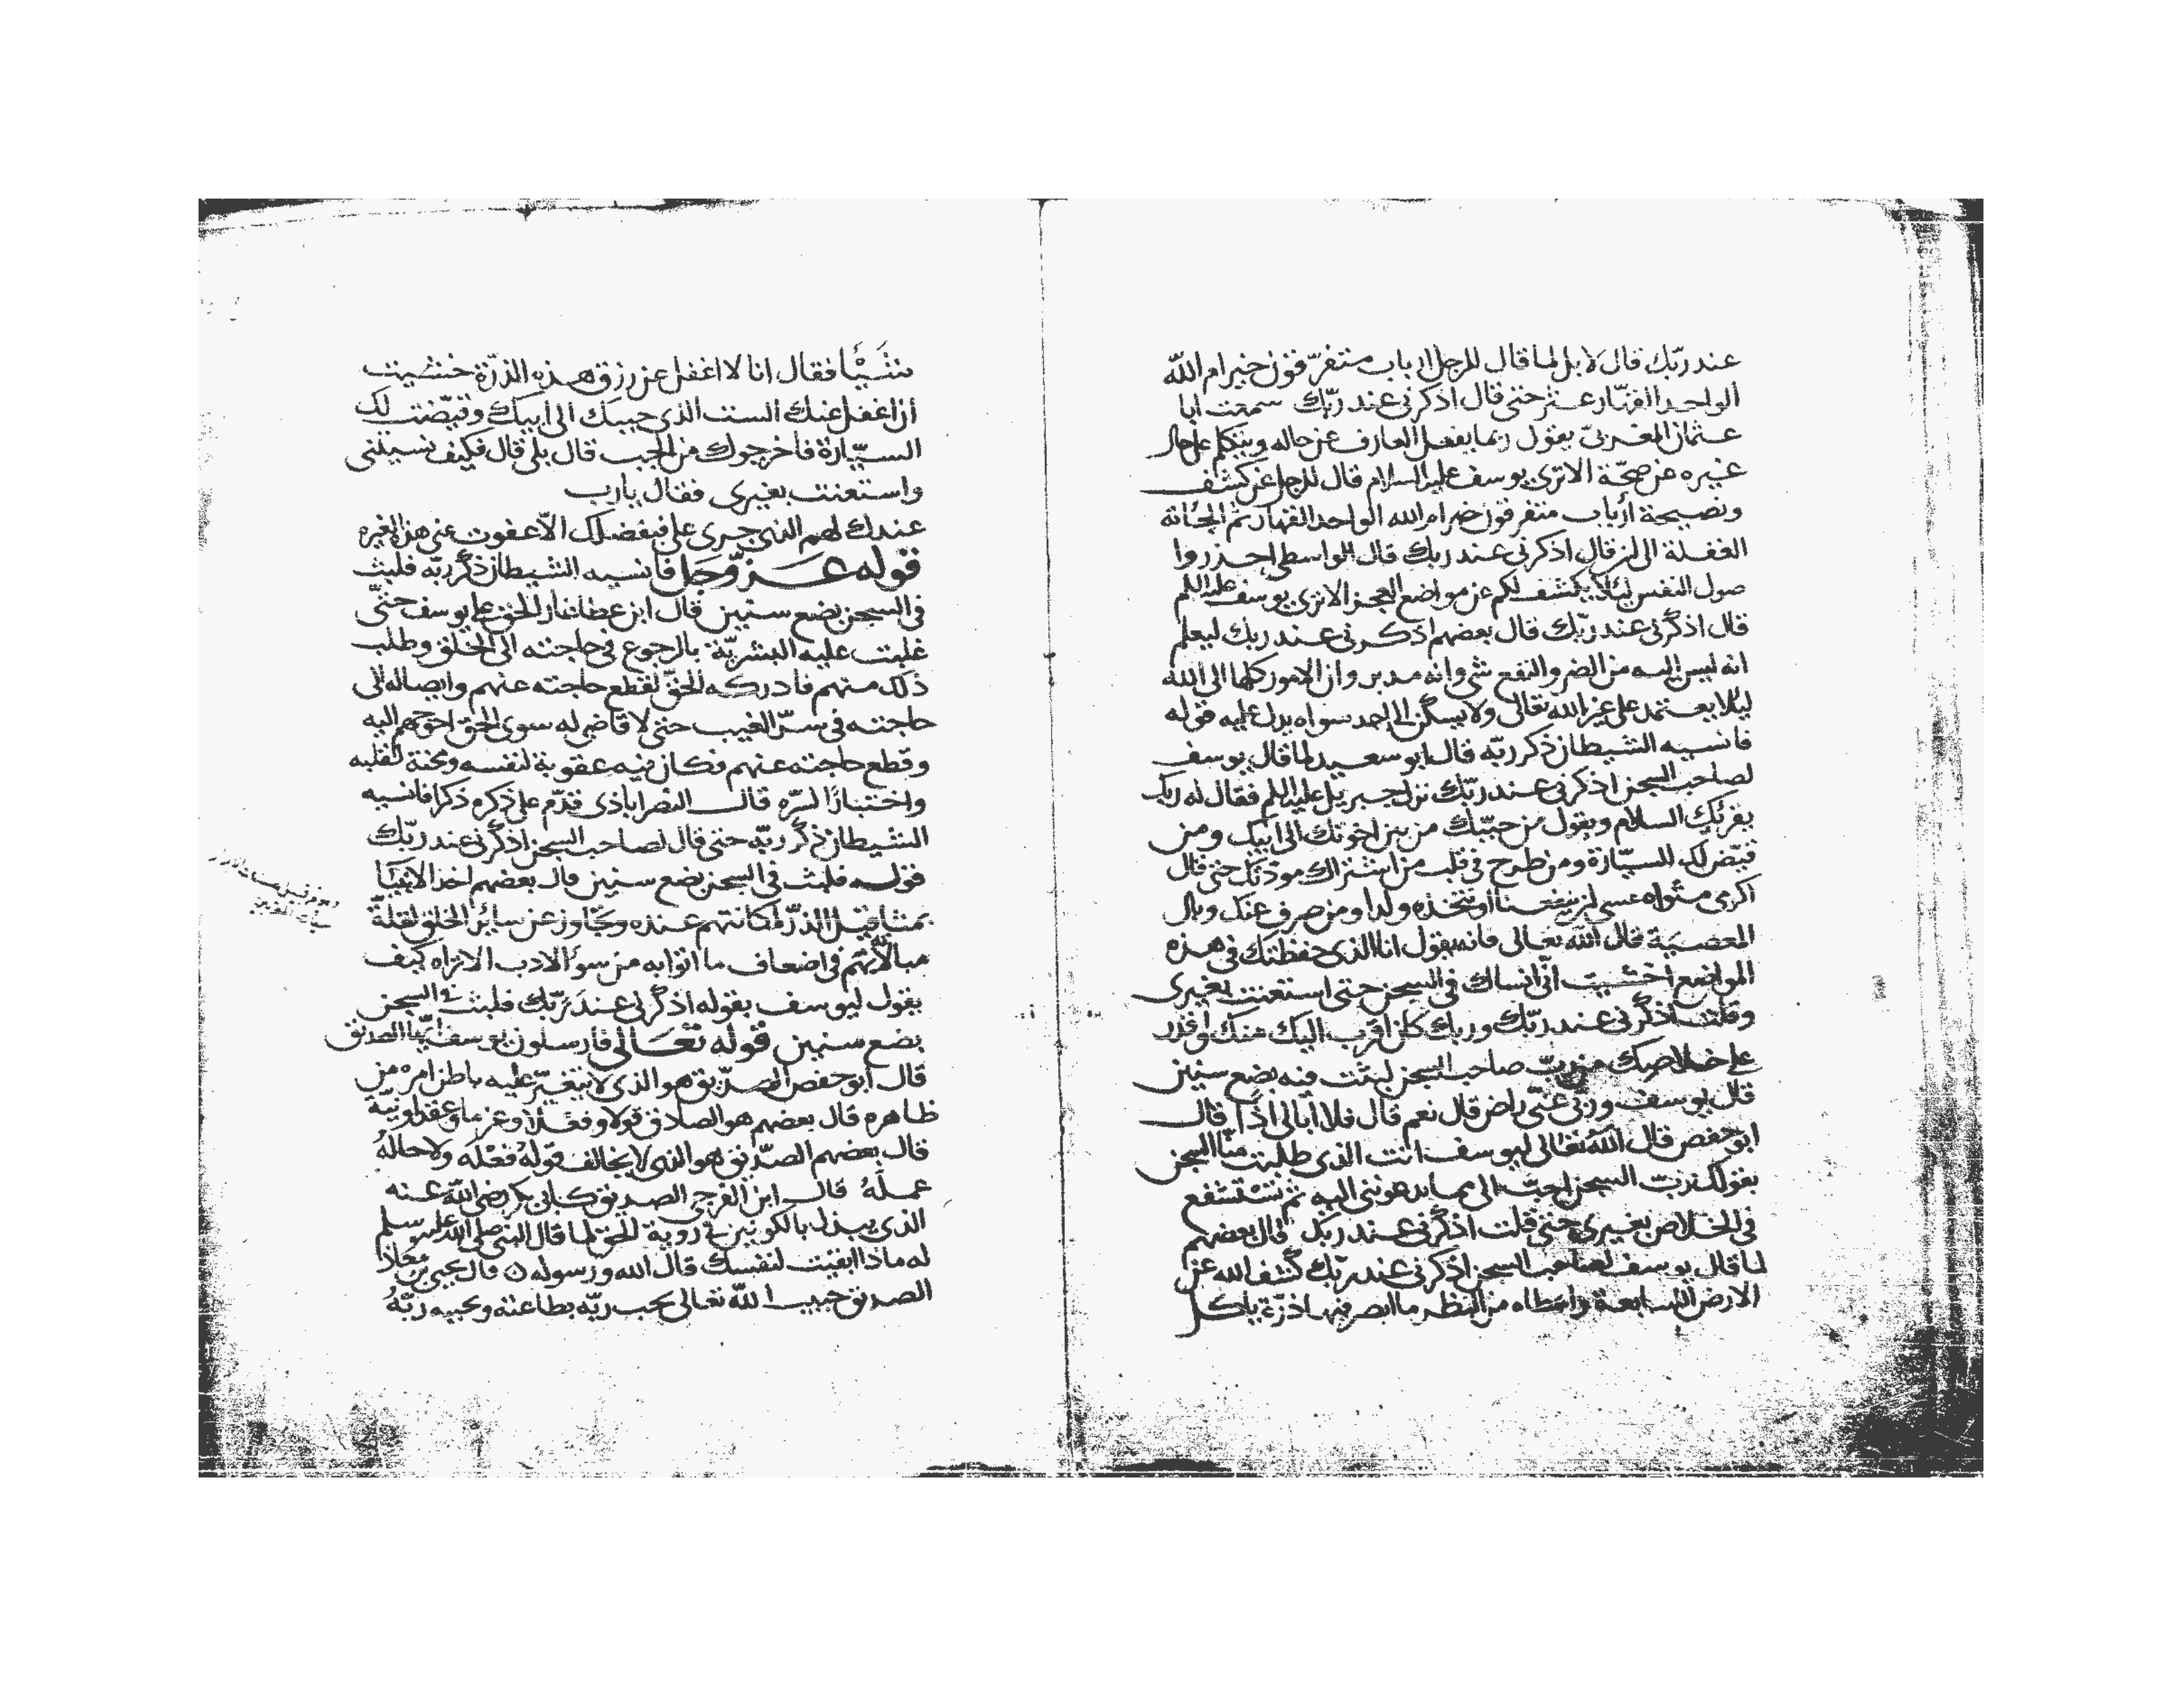 عند ربّك قال لا بل لما قال للرجل ارباب متفرّقون خير ام الله
الواحد القهّار عتر حتى قال اذكرنى عند ربّك سمعت ابا
عثمان المغربىّ يقول ربما يغفل العارف عن حاله ويتكلم على حال
غيره عن صحّة الا ترى يوسف عليه السلام قال للرجل عن كشف
ونصيحة أرباب متفرقون خير ام الله الواحد القهار ثم الجأته
الغفلة الى ان قال اذكرنى عند ربك قال الواسطى احذروا
صول النفس ليلا يكشف لكم عن مواضع العجز الا ترى يوسف عليه السلم
قال اذكرنى عند ربّك قال بعضهم اذكرنى عند ربك ليعلم
انه ليس اليه من الضر والنفع شى وانه مدبر وان الامور كلها الى الله
ليلا يعتمد على غير الله تعالى ولا يسكن الى احد سواه يدل عليه قوله
فانسيه الشيطان ذكر ربّه قال ابو سعيد لما قال يوسف
لصاحب السجن اذكرنى عند ربّك نزل جبريل عليه السلم فقال له ربك
يقرئك السلام ويقول من حبّبك من بين اخوتك الى ابيك ومن
قيّض لك السيّارة ومن طرح فى قلب من اشتراك مودّتك حتى قال
اكرمى مثواه عسى ان ينفعنا او نتخذه ولدا ومن صرف عنك وبال
المعصية قال الله تعالى فانه يقول انا الذى حفظتك فى هذه
المواضع اخشيت انّى انساك فى السجن حتى استعنت بغيرى
وقلت اذكرنى عند ربّك وربك كان اقرب اليك منك واقدر
على خلاصك من ربّ صاحب السجن لبثت فيه بضع سنين
قال يوسف وربّى عنّى راض قال نعم قال فلا أبالى اذًا قال
ابو حفص قال الله تعالى ليوسف انت الذى طلبت منّا السجن
بقولك ربّ السجن احبّ الى مما يدعوننى اليه ثم تستشفع
فى الخلاص بغيرى حتى قلت اذكرنى عند ربك قال بعضهم
لما قال يوسف لصاحب السجن اذكرنى عند ربّك كشف الله عن
الارض السابعة واعطاه من النظر ما ابصر فيها ذرّة ياكل
شَيْئًا فقال انا لا اغفل عن رزق هذه الذرّة خشيت
أن اغفل عنك الست الذى حببك الى أبيك وقيّضت لك
السيّارة فاخرجوك من الجب قال بلى قال فكيف نسيتنى
واستعنت بغيرى فقال يارب
عندك لهم الذى جرى على فبفضلك الّا عفوت عنى هذا الغيره
قوله عزّ وجل فانسيه الشيطان ذكر ربّه فلبث
فى السجن بضع سنين قال ابن عطا غار الحق على يوسف حتّى
غلبت عليه البشريّة بالرجوع فى حاجته الى الخلق وطلب
ذلك منهم فادركه الحقّ لقطع حاجته عنهم وايصاله الى
حاجته فى سرّ الغيب حتى لا قاضى له سوى الحق احوجهم اليه
وقطع حاجته عنهم فكان فيه عقوبة لنفسه ومحنة لقلبه
واختبارًا لسرّه قال النصراباذى قدّم على ذكره ذكرا فانسيه
الشيطان ذكر ربّه حتى قال لصاحب السجن اذكرنى عند ربّك
قوله فلبث فى السجن بضع سنين قال بعضهم اخذ الانبياَ
بمثاقيل الذرّ لمكانتهم عنده وتجاوز عن سائر الخلق لقلّة
مبالاتهم فى اضعاف ما اتوا به من سوَ الادب الا تراه كيف
يقول ليوسف بقوله اذكرنى عند ربّك فلبث فى السجن
بضع سنين قوله تعالى فأرسلون يوسف ايّها الصديق
قال ابو حفص الصدّيق هو الذى لا يتغيّر عليه باطن امره من
ظاهره قال بعضهم هو الصادق قولا وفعلا وعزما وعقدا ونيّة
قال بعضهم الصدّيق هو الذى لا يخالف قولُه فعْلَه ولا حالُهُ
عملَهُ قال ابن الفرجى الصديق كابى بكر رضى الله عنه
الذى يبذل بالكونين فى روية الحق لما قال النبى صلى الله عليه وسلم
له ماذا ابقيت لنفسك قال الله ورسوله ن قال يحيى بن معاذ
الصديق حبيب الله تعالى يحب ربّه بطاعته ويحبيه ربّهُ